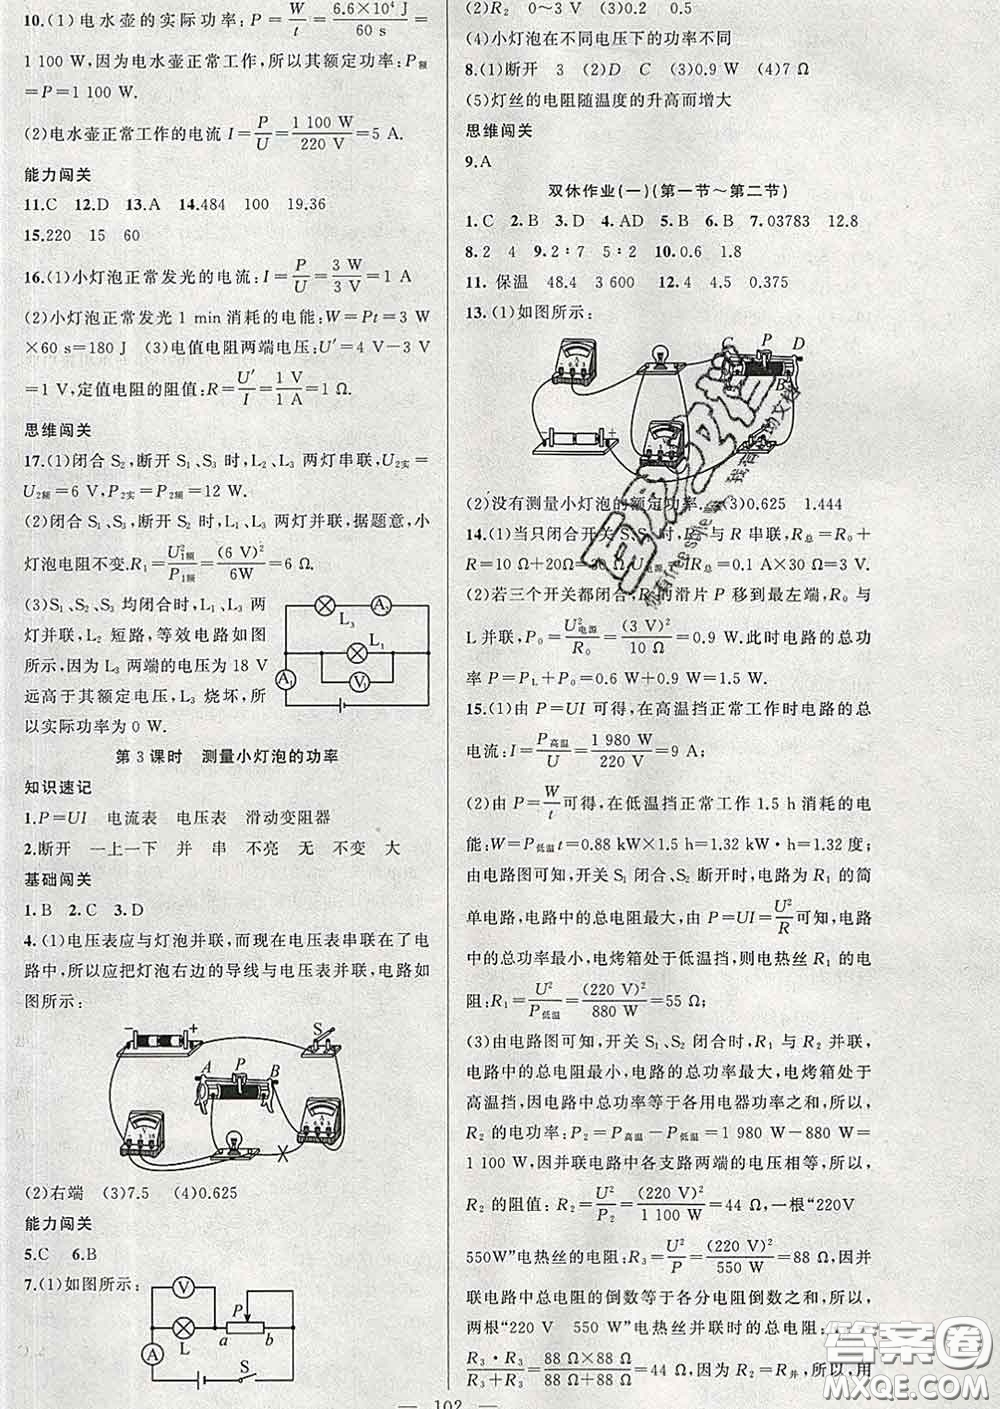 10.(1)电水壶的实际功率:P=W/t=6.6×10⁴ J/60 s=
1 100 W,因为电水壶正常工作,所以其额定功率:P额
=P=1 100 W.
(2)电水壶正常工作的电流 I=P/U=1 100 W/220 V=5 A.
能力闯关
11.C 12.D 13.A 14.484 100 19.36
15.220 15 60
16.(1)小灯泡正常发光的电流:I=P/U=3 W/3 V=1 A
(2)小灯泡正常发光 1 min 消耗的电能:W=Pt=3 W
×60 s=180 J (3)电值电阻两端电压:U′=4 V-3 V
=1 V,定值电阻的阻值:R=U′/I=1 V/1 A=1 Ω.
思维闯关
17.(1)闭合 S₂,断开 S₁、S₃ 时,L₂、L₃ 两灯串联,U₂实=
U₂额=6 V,P₂实=P₂额=12 W.
(2)闭合 S₁、S₃,断开 S₂ 时,L₁、L₃ 两灯并联,据题意,小
灯泡电阻不变.R₁=U²₁额/P₁额=(6 V)²/6W=6 Ω.
(3)S₁、S₂、S₃ 均闭合时,L₁、L₃ 两
灯并联,L₂ 短路,等效电路如图
所示,因为 L₃ 两端的电压为 18 V
远高于其额定电压,L₃ 烧坏,所
以实际功率为 0 W.
L₃ A L₁ A₁ V₁
第 3 课时 测量小灯泡的功率
知识速记
1.P=UI 电流表 电压表 滑动变阻器
2.断开 一上一下 并 串 不亮 无 不变 大
基础闯关
1.B 2.C 3.D
4.(1)电压表应与灯泡并联,而现在电压表串联在了电
路中,所以应把灯泡右边的导线与电压表并联,电路如
图所示:
- + S A P B
(2)右端 (3)7.5 (4)0.625
能力闯关
5.C 6.B
7.(1)如图所示:
V P L a b A S
(2)R₂ 0~3 V (3)0.2 0.5
(4)小灯泡在不同电压下的功率不同
8.(1)断开 3 (2)D C (3)0.9 W (4)7 Ω
(5)灯丝的电阻随温度的升高而增大
思维闯关
9.A
双休作业(一)(第一节~第二节)
1.C 2.B 3.D 4.AD 5.B 6.B 7.03783 12.8
8.2 4 9.2∶7 5∶2 10.0.6 1.8
11.保温 48.4 3 600 12.4 4.5 0.375
13.(1)如图所示:
C P D B - +
(2)没有测量小灯泡的额定功率. (3)0.625 1.444
14.(1)当只闭合开关 S、S₁ 时,R₀ 与 R 串联,R总=R₀+
R=10 Ω+20Ω=30 Ω,U电源=IR总=0.1 A×30 Ω=3 V.
(2)若三个开关都闭合,R的滑片 P 移到最左端,R₀ 与
L 并联,P₀=U²电源/R₀=(3 V)²/10 Ω=0.9 W.此时电路的总功
率 P=PL+P₀=0.6 W+0.9 W=1.5 W.
15.(1)由 P=UI 可得,在高温挡正常工作时电路的总
电流:I=P高温/U=1 980 W/220 V=9 A;
(2)由 P=W/t可得,在低温挡正常工作 1.5 h 消耗的电
能:W=P低温t=0.88 kW×1.5 h=1.32 kW·h=1.32 度;
由电路图可知,开关 S₁ 闭合、S₂ 断开时,电路为 R₁ 的简
单电路,电路中的总电阻最大,由 P=UI=U²/R可知,电路
中的总功率最小,电烤箱处于低温挡,则电热丝 R₁ 的电
阻:R₁=U²/P低温=(220 V)²/880 W=55 Ω;
(3)由电路图可知,开关 S₁、S₂ 闭合时,R₁ 与 R₂ 并联,
电路中的总电阻最小,电路的总功率最大,电烤箱处于
高温挡,因电路中总功率等于各用电器功率之和,所以,
R₂ 的电功率:P₂=P高温-P低温=1 980 W-880 W=
1 100 W,因并联电路中各支路两端的电压相等,所以,
R₂ 的阻值:R₂=U²/P₂=(220 V)²/1 100 W=44 Ω,一根“220V
550W”电热丝的电阻:R₃=U²/P=(220 V)²/550 W=88 Ω,因并
联电路中总电阻的倒数等于各分电阻倒数之和,所以,
两根“220 V 550 W”电热丝并联时的总电阻:
R₃·R₃/R₃+R₃=88 Ω×88 Ω/88 Ω+88 Ω=44 Ω,因为 R₂=R并,所以,用
— 102 —
答案圈
MXQE.COM